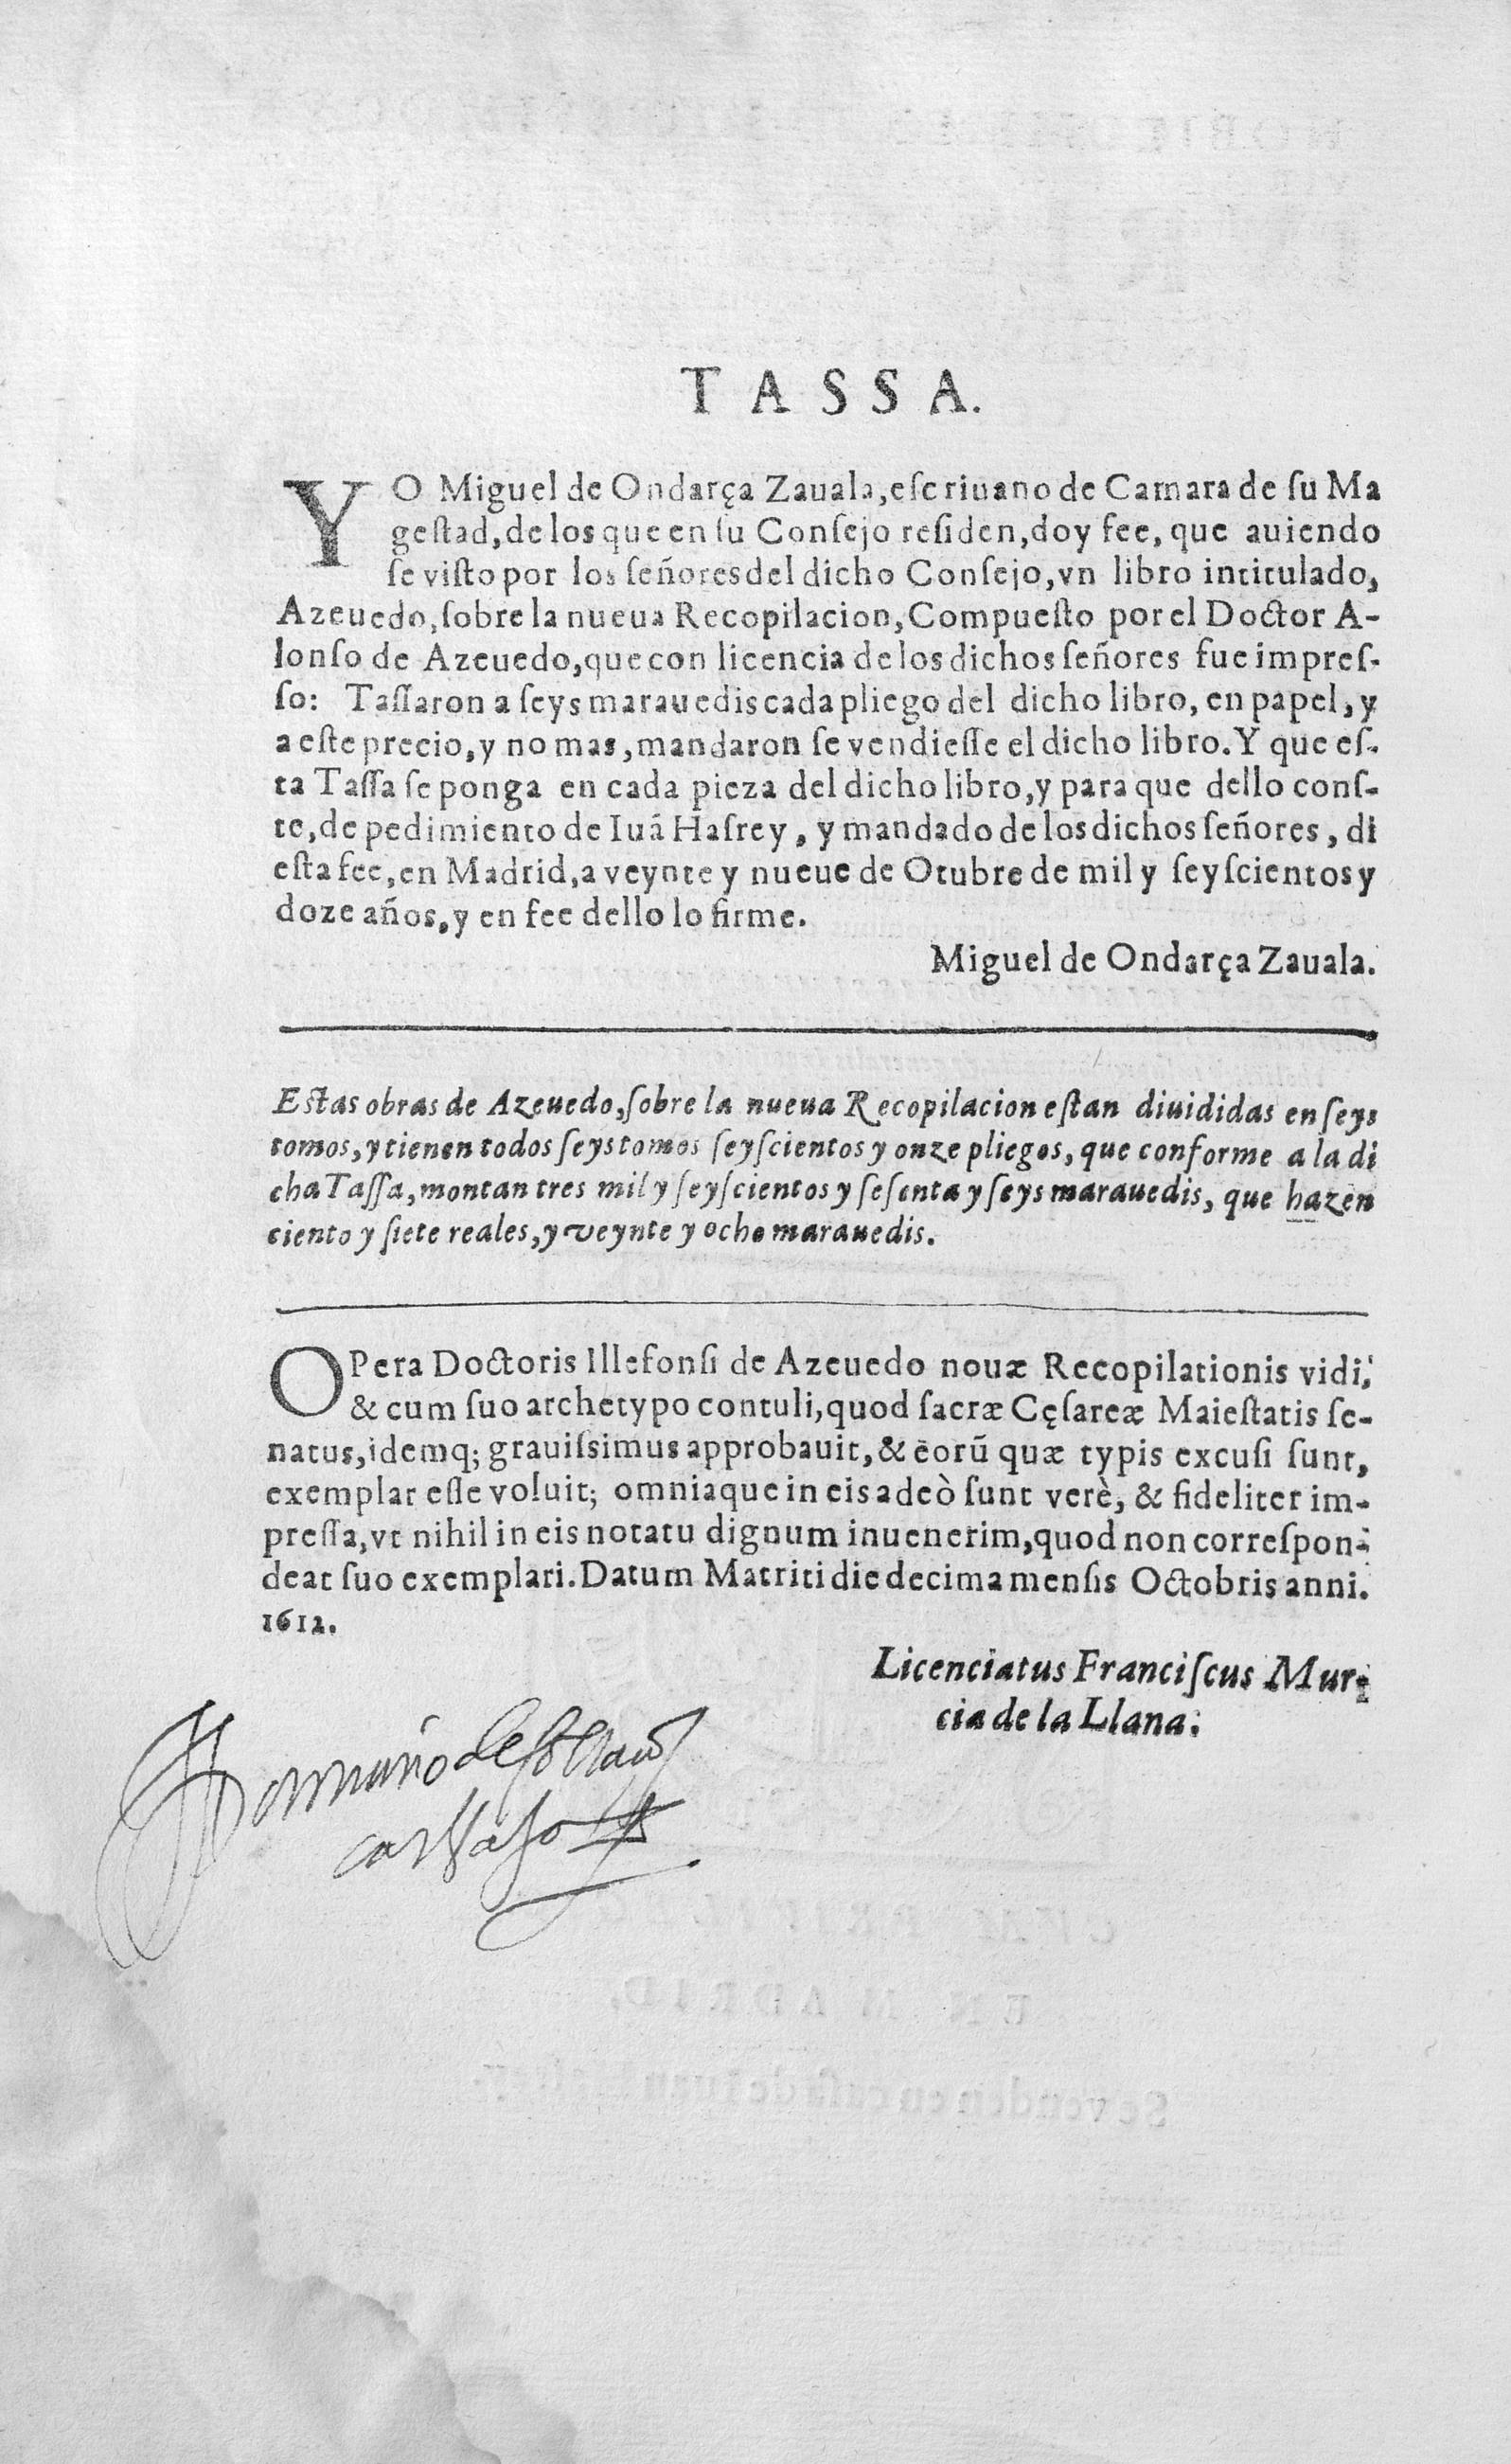 TASSA.
YO Miguel de Ondarça Zauala, escriuano de Camara de su Ma
gestad, de los que en su Consejo residen, doy fee, que auiendo
se visto por los señores del dicho Consejo, vn libro intitulado,
Azeuedo, sobre la nueua Recopilacion, Compuesto por el Doctor A-
lonso de Azeuedo, que con licencia de los dichos señores fue impres-
so: Tassaron a seys marauedis cada pliego del dicho libro, en papel, y
a este precio, y no mas, mandaron se vendiesse el dicho libro. Y que es-
ta Tassa se ponga en cada pieza del dicho libro, y para que dello cons-
te, de pedimiento de Iuã Hasrey, y mandado de los dichos señores, di
esta fee, en Madrid, a veynte y nueue de Otubre de mil y seyscientos y
doze años, y en fee dello lo firme.
Miguel de Ondarça Zauala.
Estas obras de Azeuedo, sobre la nueua Recopilacion estan diuididas en seys
tomos, y tienen todos seys tomos seyscientos y onze pliegos, que conforme a la di
cha Tassa, montan tres mil y seyscientos y sesenta y seys marauedis, que hazen
ciento y siete reales, y veynte y ocho marauedis.
OPera Doctoris Illefonsi de Azeuedo nouæ Recopilationis vidi,
& cum suo archetypo contuli, quod sacræ Cęsareæ Maiestatis se-
natus, idemq; grauissimus approbauit, & eorũ quæ typis excusi sunt,
exemplar esse voluit; omniaque in eis adeò sunt verè, & fideliter im-
pressa, vt nihil in eis notatu dignum inuenerim, quod non correspon-
deat suo exemplari. Datum Matriti die decima mensis Octobris anni.
1612.
Licenciatus Franciscus Mur-
cia de la Llana.